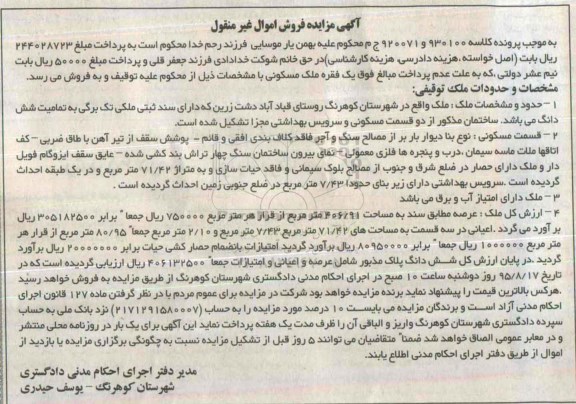 آگهی مزایده فروش اموال غیر منقول
به موجب پرونده کلاسه ۹۳۰۱۰۰ و ۹۲۰۰۷۱ ج م محکوم علیه بهمن یار موسایی فرزند رحم خدا محکوم است به پرداخت مبلغ ۲۴۴۰۲۸۷۲۳
ریال بابت (اصل خواسته ،هزینه دادرسی، هزینه کارشناسی)در حق خانم شوکت خدادادی فرزند جعفر قلی و پرداخت مبلغ ۵۰۰۰۰ ریال بابت
نیم عشر دولتی ،که به علت عدم پرداخت مبالغ فوق یک فقره ملک مسکونی با مشخصات ذیل از محکوم علیه توقیف و به فروش می رسد.
مشخصات و حدودات ملک توقیفی:
۱ – حدود و مشخصات ملک : ملک واقع در شهرستان کوهرنگ روستای قباد آباد دشت زرین که دارای سند ثبتی ملکی تک برگی به تمامیت شش
دانگ می باشد. ساختمان مذکور از دو قسمت مسکونی و سرویس بهداشتی مجزا تشکیل شده است.
۲ – قسمت مسکونی : نوع بنا دیوار بار بر از مصالح سنگ و آجر فاقد کلاف بندی افقی و قائم – پوشش سقف از تیر آهن با طاق ضربی – کف
اتاقها ملات ماسه سیمان ،درب و پنجره ها فلزی معمولی – نمای بیرون ساختمان سنگ چهار تراش بند کشی شده – عایق سقف ایزوگام فویل
دار و ملک دارای حصار در ضلع شرق و جنوب از مصالح بلوک سیمانی و فاقد حیات سازی و به متراژ ۷۱/۴۲ متر مربع و در یک طبقه احداث
گردیده است .سرویس بهداشتی دارای زیر بنای حدودا ۷/۴۳ متر مربع در ضلع جنوبی زمین احداث گردیده است .
۳ – ملک دارای امتیاز آب و برق می باشد
۴ – ارزش کل ملک : عرصه مطابق سند به مساحت ۴۰۶/۹۱ متر مربع از قرار هر متر مربع ۷۵۰۰۰۰ ریال جمعا" برابر ۳۰۵۱۸۲۵۰۰ ریال
بر آورد می گردد .اعیانی در سه قسمت به مساحت های ۷۱/۴۲ متر مربع ۷/۴۳ متر مربع و ۲/۱۰ متر مربع جمعا" ۸۰/۹۵ متر مربع از قرار هر
متر مربع ۱۰۰۰۰۰۰ ریال جمعا" برابر ۸۰۹۵۰۰۰۰ ریال برآورد گردید امتیازات بانضمام حصار کشی حیات برابر ۲۰۰۰۰۰۰۰ ریال برآورد
گردید .در پایان ارزش کل شش دانگ پلاک مذبور شامل عرصه و اعیانی و امتیازات جمعا" ۴۰۶۱۳۲۵۰۰ ریال ارزیابی گردیده است که در
تاریخ ۹۵/۸/۱۷ روز دوشنبه ساعت ۱۰ صبح در اجرای احکام مدنی دادگستری شهرستان کوهرنگ از طریق مزایده به فروش خواهد رسید
.هرکس بالاترین قیمت را پیشنهاد نماید برنده مزایده خواهد بود شرکت در مزایده برای عموم مردم با در نظر گرفتن ماده ۱۲۷ قانون اجرای
احکام مدنی آزاد است و برندگان مزایده می بایست ۱۰ درصد مورد مزایده را به حساب (۲۱۷۱۲۹۱۵۸۰۰۰۷) نزد بانک ملی به حساب
سپرده دادگستری شهرستان کوهرنگ واریز و الباقی آن را ظرف مدت یک هفته پرداخت نماید این آگهی برای یک بار در روزنامه محلی منتشر
و در معابر عمومی الصاق خواهد شد ضمنا" متقاضیان می توانند ۵ روز قبل از تشکیل مزایده نسبت به چگونگی برگزاری مزایده یا بازدید از
اموال از طریق دفتر اجرای احکام مدنی اطلاع یابند.
مدیر دفتر اجرای احکام مدنی دادگستری
شهرستان کوهرنگ – یوسف حیدری